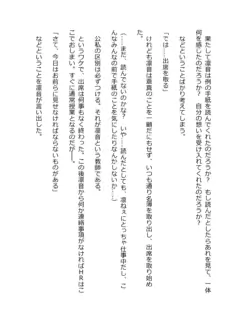 果たして凛音は例の手紙を読んでくれたのだろうか？　もし読んだとしたらあれを見て、一体
何を感じたのだろうか？　自分の想いを受け入れてくれたのだろうか？
などということばかり考えてしまう。
「では――出席を取る」
けれども凛音は嘉真のことを一顧だにもせず、いつも通り名簿を取り出し、出席を取り始め
た。
（まだ、読んでないのかな？　いや――読んだとしても、凛ねぇにとっちゃ仕事中だし、こ
んなとこでみんなの前で手紙のことを気にしたりなんかしないか――）
公私の区別は必ずつける。それが凛音という教師である。
というワケで、出席は何事もなく終わった。この後凛音から何か連絡事項がなければＨＲはこ
こでおしまい、すぐに通常授業となるのだが――。
「さて、今日はお前らに見せなければならないものがある」
などということを凛音が言い出した。